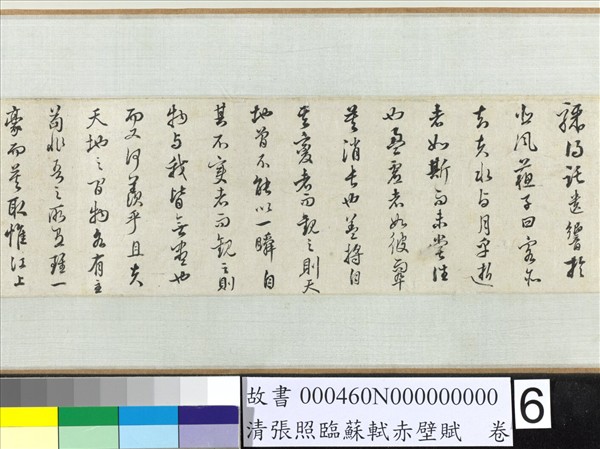 驟得託遺響於
悲風蘇子曰客亦
知夫水与月乎逝
者如斯而未嘗往
也盈虛者如彼而卒
莫消長也蓋將自
其變者而觀之則天
地曾不能以一瞬自
其不變者而觀之則
物与我皆無盡也
而又何羨乎且夫
天地之間物各有主
苟非吾之所有雖一
豪而莫取惟江上
故書 000460N000000000
清張照臨蘇軾赤壁賦 卷
6